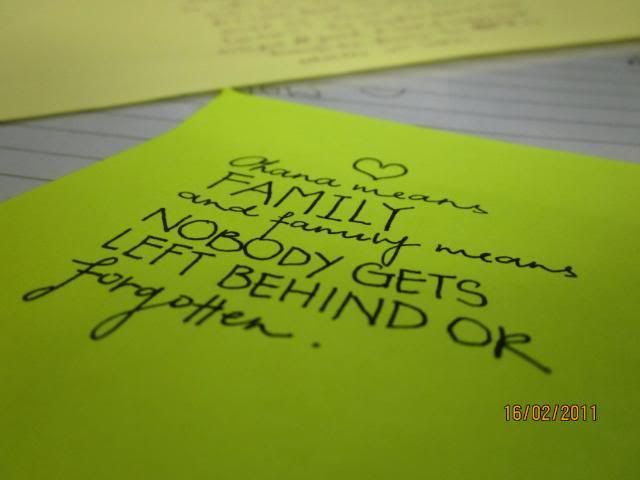 Ohana means
FAMILY
and family means
NOBODY GETS
LEFT BEHIND OR
forgotten.
16/02/2011